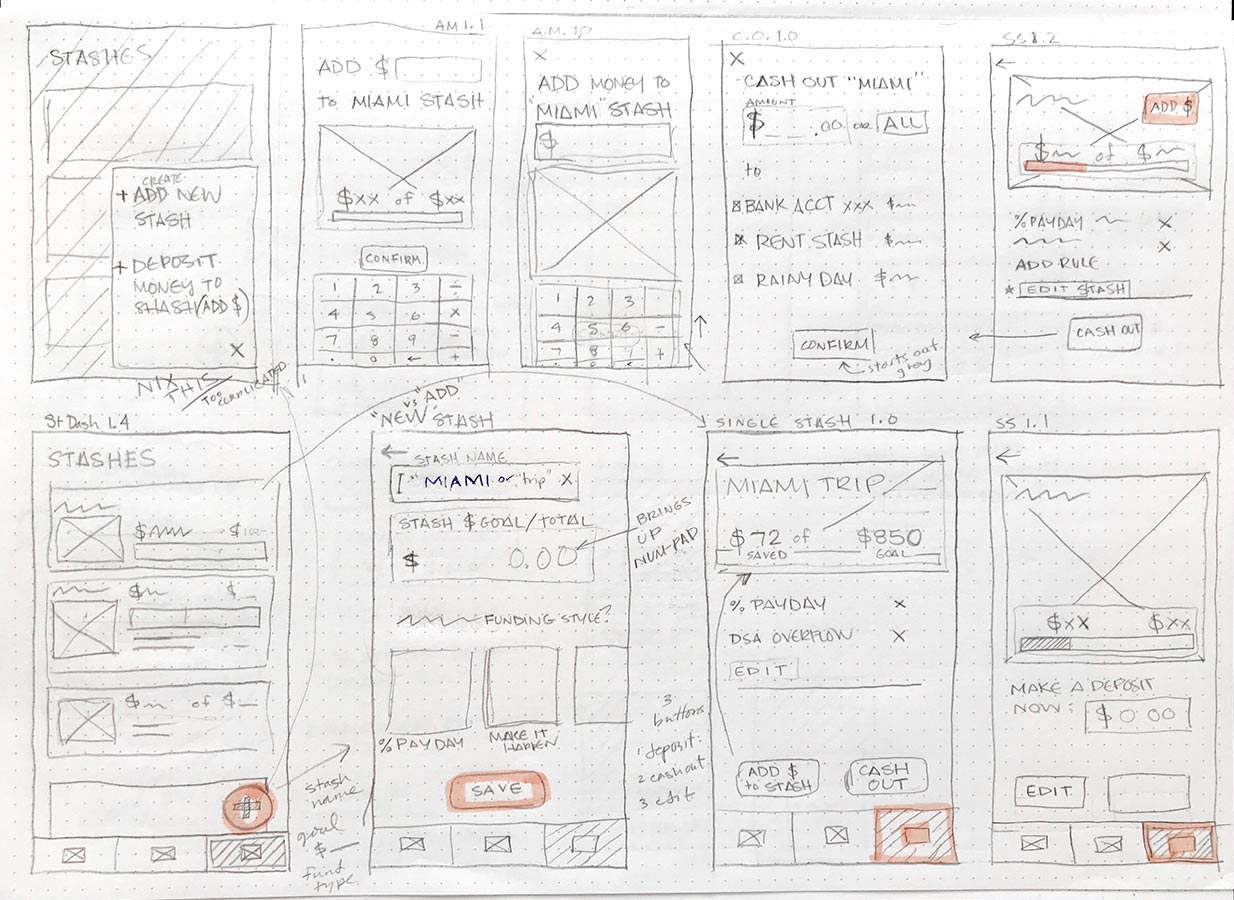 STASHES
CREATE
+ ADD NEW
STASH
+ DEPOSIT
MONEY TO
STASH (ADD $)
X
NIX
THIS
TOO
COMPLICATED
AM 1.1
ADD $
to MIAMI STASH
$xx of $xx
CONFIRM
1 2 3 ÷
4 5 6 x
7 8 9 -
. 0 ← +
A.M. 1.0
X
ADD MONEY TO
"MIAMI" STASH
$
1 2 3
4 5 6 -
7 8 9 +
C.O. 1.0
X
CASH OUT "MIAMI"
AMOUNT
$ _ _ .00 OR ALL
to
BANK ACCT XXX $
RENT STASH $
RAINY DAY $
CONFIRM
starts out
gray
SS 1.2
←
ADD $
$ of $
% PAYDAY X
X
ADD RULE
* EDIT STASH
CASH OUT
St Dash 1.4
STASHES
$ $
$ $
$ of $
+
stash
name
goal
$
fund
type
vs "ADD"
"NEW" STASH
←
STASH NAME
"MIAMI or "trip" X
STASH $ GOAL/TOTAL
$ 0.00
BRINGS
UP
NUM-PAD
FUNDING STYLE?
% PAYDAY
MAKE IT
HAPPEN
SAVE
3
buttons
1 deposit
2 cashout
3 edit
SINGLE STASH 1.0
←
MIAMI TRIP
$72 of $850
SAVED GOAL
% PAYDAY X
DSA OVERFLOW X
EDIT
ADD $
to STASH
CASH
OUT
SS 1.1
←
$xx $xx
MAKE A DEPOSIT
NOW: $0.00
EDIT